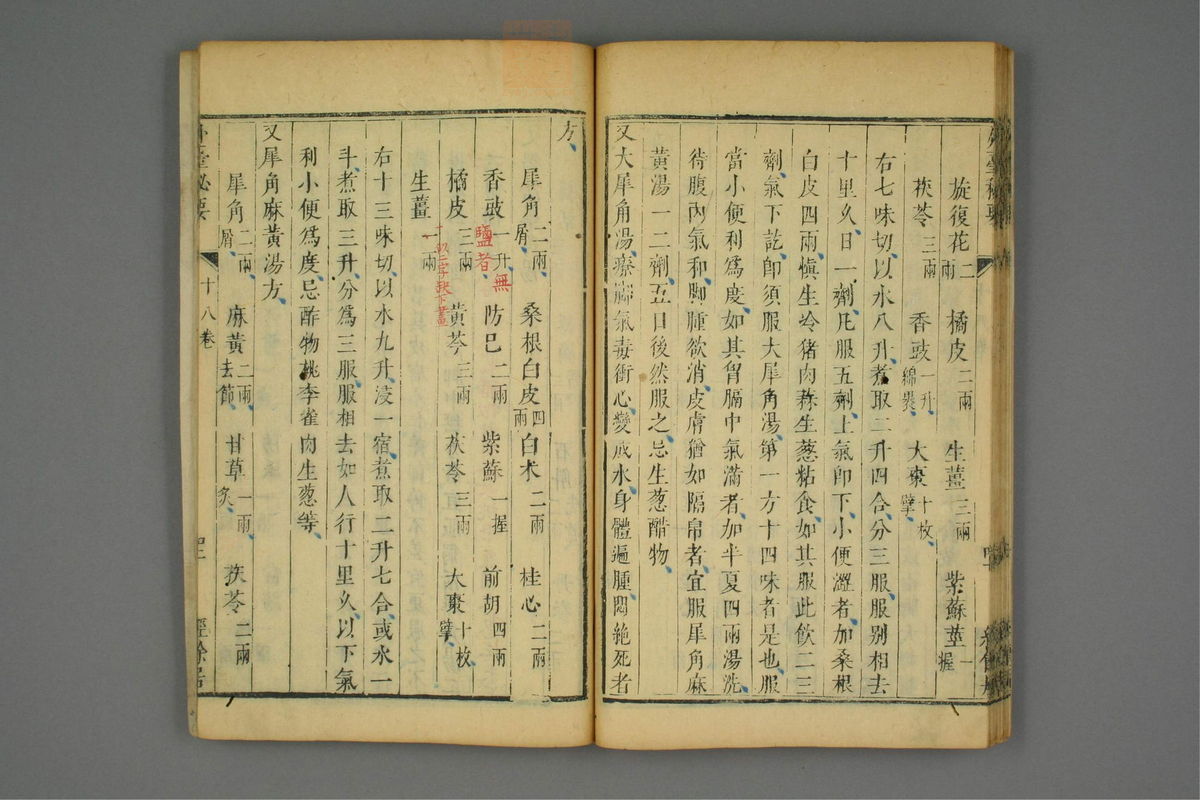 旋復花二兩 橘皮二兩 生薑三兩 紫蘇莖一握
茯苓三兩 香豉一升綿裹 大棗十枚擘
右七味切以水八升煮取二升四合分三服服别相去
十里久日一劑凡服五劑上氣卽下小便澀者加桑根
白皮四兩愼生冷猪肉蒜生葱粘食如其服此飲二三
劑氣下訖卽須服大犀角湯第一方十四味者是也服
當小便利爲度如其胷膈中氣滿者加半夏四兩湯洗
待腹內氣和脚腫欲消皮膚猶如隔帛者宜服犀角麻
黃湯一二劑五日後然服之忌生葱醋物
又大犀角湯療脚氣毒衝心變成水身體遍腫悶絶死者
方
犀角二兩屑 桑根白皮四兩 白术二兩 桂心二兩
香豉一升 防巳二兩 紫蘇一握 前胡四兩
無鹽者
橘皮三兩 黃芩三兩 茯苓三兩 大棗十枚擘
生薑一兩
右十三味切以水九升浸一宿煮取二升七合或水一
斗煮取三升分爲三服服相去如人行十里久以下氣
利小便爲度忌酢物桃李雀肉生葱等
又犀角麻黃湯方
犀角二兩屑 麻黃二兩去節 甘草一兩炙 茯苓二兩
外臺祕要 十八卷 經餘居